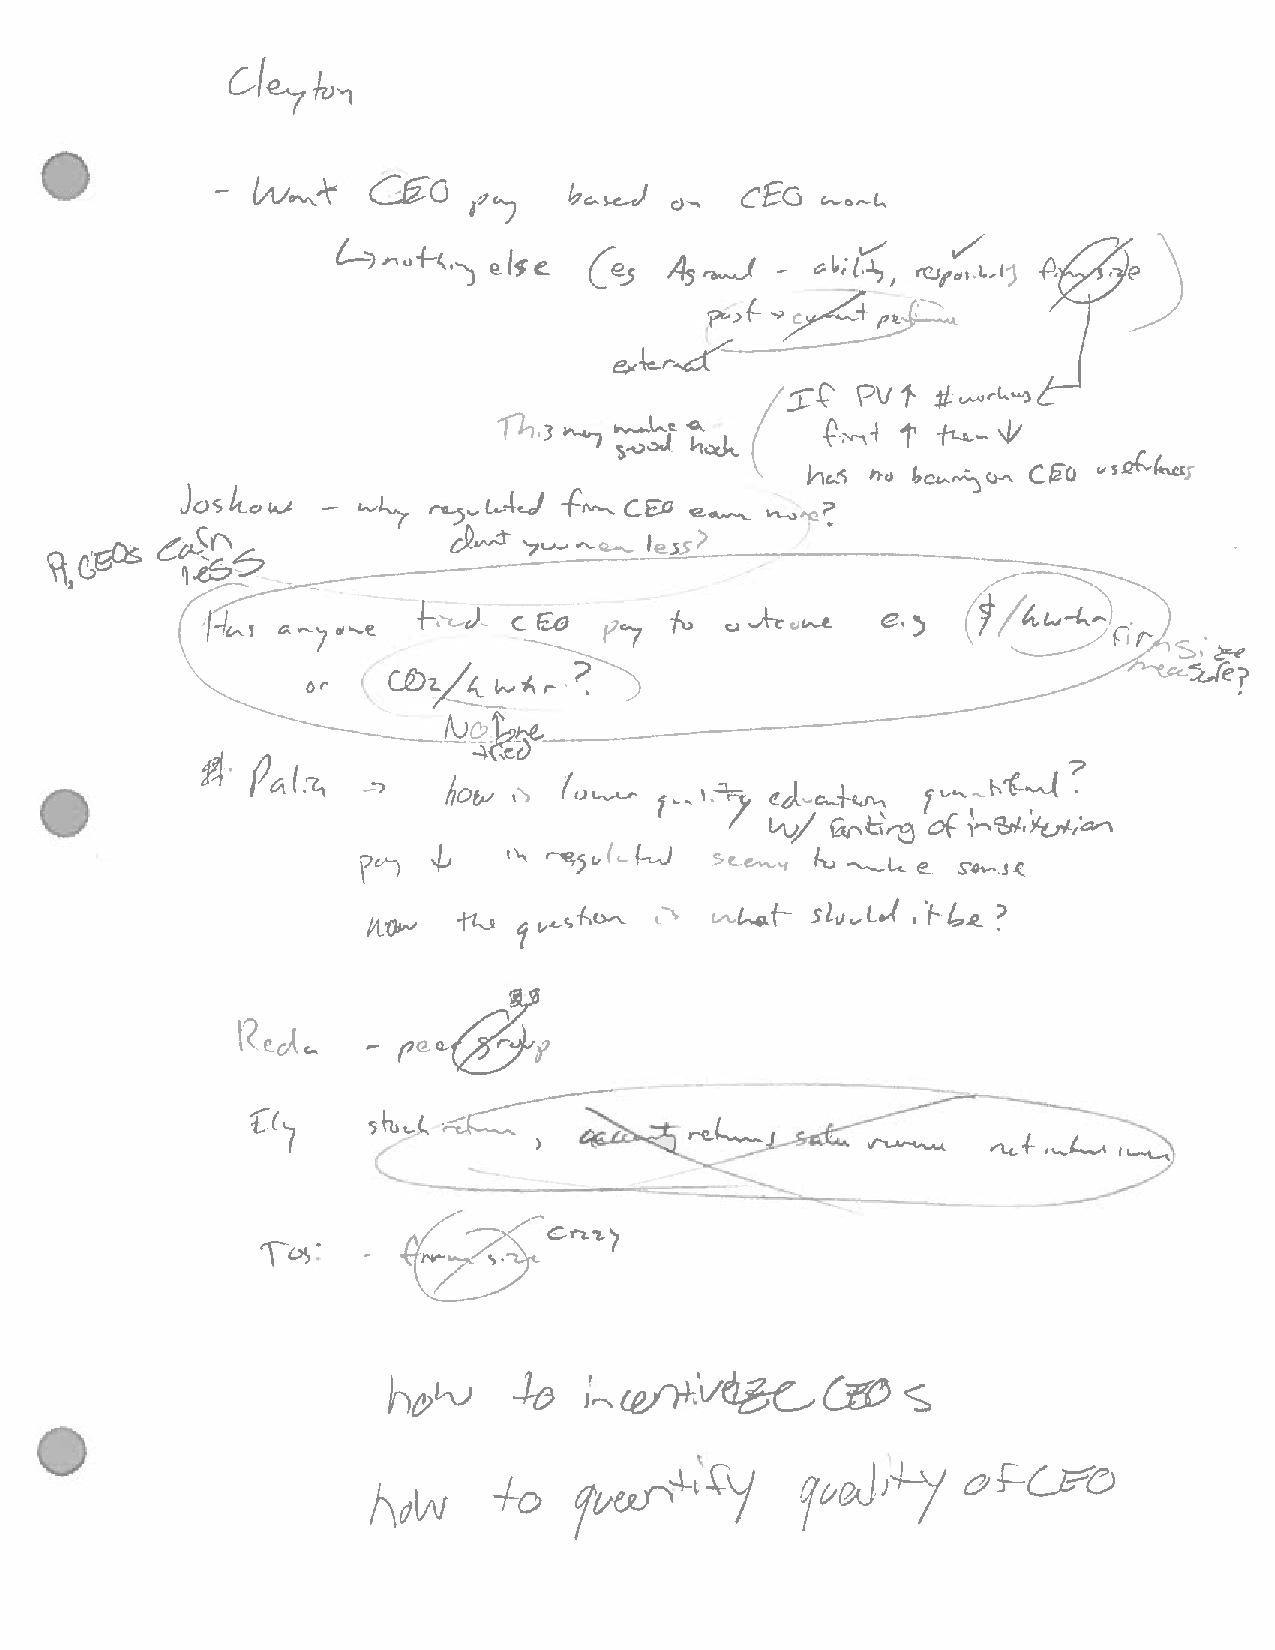 Cleyton
- Want CEO pay based on CEO work
↳ nothing else (eg Agrawal - ability, responsibility firm size)
past → current
external
If PV ↑ # workers
This may make a good hook
first ↑ then ↓
has no bearing on CEO usefulness
Joskow - why regulated firm CEO earn more?
don't you mean less?
CEOs earn less
Has anyone tied CEO pay to outcome e.g $/kwhr
firm size measure?
or CO2/kwhr?
No one tied
Palia → how is lower quality education quantified?
w/ ranking of institution
pay ↓ in regulated seems to make sense
now the question is what should it be?
Reda - peer group
Ely stock return, returns sales revenue net interest
Tosi - firm size crazy
how to incentivize CEOs
how to quantify quality of CEO